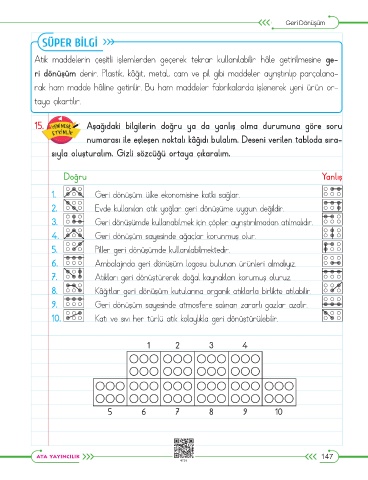 Geri Dönüşüm
SÜPER BİLGİ
Atık maddelerin çeşitli işlemlerden geçerek tekrar kullanılabilir hâle getirilmesine ge-
ri dönüşüm denir. Plastik, kâğıt, metal, cam ve pil gibi maddeler ayrıştırılıp parçalana-
rak ham madde hâline getirilir. Bu ham maddeler fabrikalarda işlenerek yeni ürün or-
taya çıkartılır.
15. Aşağıdaki bilgilerin doğru ya da yanlış olma durumuna göre soru
numarası ile eşleşen noktalı kâğıdı bulalım. Deseni verilen tabloda sıra-
sıyla oluşturalım. Gizli sözcüğü ortaya çıkaralım.
Doğru Yanlış
1. Geri dönüşüm ülke ekonomisine katkı sağlar.
2. Evde kullanılan atık yağlar geri dönüşüme uygun değildir.
3. Geri dönüşümde kullanılabilmek için çöpler ayrıştırılmadan atılmalıdır.
4. Geri dönüşüm sayesinde ağaçlar korunmuş olur.
5. Piller geri dönüşümde kullanılabilmektedir.
6. Ambalajında geri dönüşüm logosu bulunan ürünleri almalıyız.
7. Atıkları geri dönüştürerek doğal kaynakları korumuş oluruz.
8. Kâğıtlar geri dönüşüm kutularına organik atıklarla birlikte atılabilir.
9. Geri dönüşüm sayesinde atmosfere salınan zararlı gazlar azalır.
10. Katı ve sıvı her türlü atık kolaylıkla geri dönüştürülebilir.
1 2 3 4
5 6 7 8 9 10
ATA YAYINCILIK
147